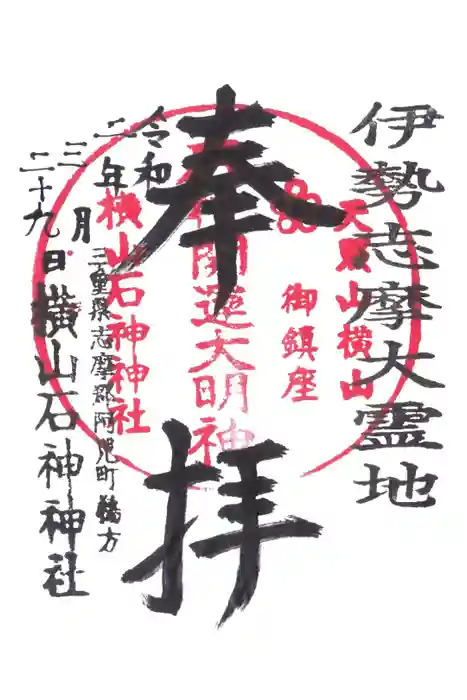 伊勢志摩大霊地
奉拝
天照山横山
御鎮座
開運大明神
横山石神神社
令和
二年
三月
二十九日
三重県志摩郡阿児町鵜方
横山石神神社